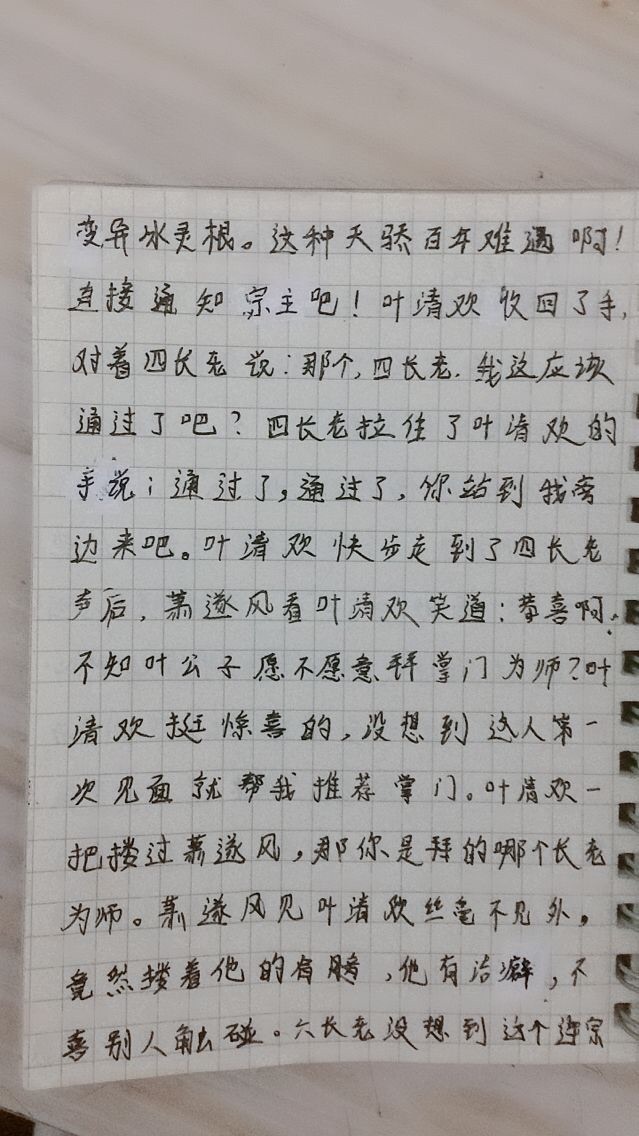 变异冰灵根。这种天骄百年难遇啊!
直接通知宗主吧!叶清欢收回了手,
对着四长老说:那个,四长老.我这应该
通过了吧?四长老拉住了叶清欢的
手说:通过了,通过了,你站到我旁
边来吧。叶清欢快步走到了四长老
身后,萧遂风看叶清欢笑道:恭喜啊,
不知叶公子愿不愿意拜掌门为师?叶
清欢挺惊喜的,没想到这人第一
次见面就帮我推荐掌门。叶清欢一
把搂过萧遂风,那你是拜的哪个长老
为师。萧遂风见叶清欢丝毫不见外。
竟然搂着他的肩膀,他有洁癖,不
喜别人触碰。六长老没想到这个连宗